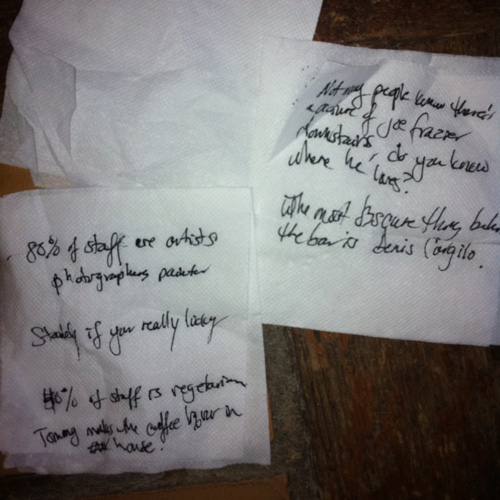 Not my people know there's
a picture of Joe Frazier
downstairs, do you know
where he hangs?
The most obscure thing behin
the bar is denis
80% of staff are artists
photographers painter
if you really lucky
40% of staff is vegetarian
Tommy makes the coffee liquer in
house.